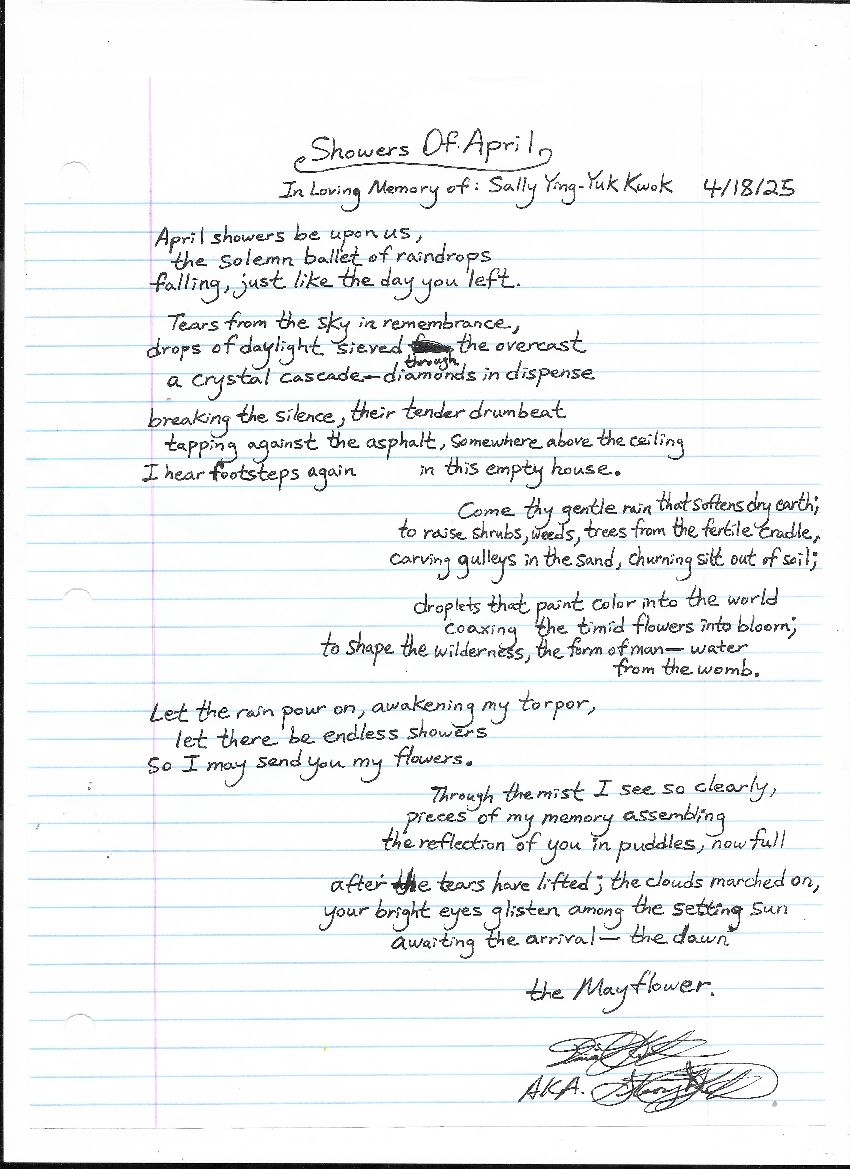 Showers Of April
In Loving Memory of: Sally Ying-Yuk Kwok 4/18/25
April showers be upon us,
the solemn ballet of raindrops
falling, just like the day you left.
Tears from the sky in remembrance,
drops of daylight sieved through the overcast
a crystal cascade—diamonds in dispense
breaking the silence, their tender drumbeat
tapping against the asphalt, somewhere above the ceiling
I hear footsteps again in this empty house.
Come thy gentle rain that softens dry earth;
to raise shrubs, weeds, trees from the fertile cradle,
carving gulleys in the sand, churning silt out of soil;
droplets that paint color into the world
coaxing the timid flowers into bloom;
to shape the wilderness, the form of man—water
from the womb.
Let the rain pour on, awakening my torpor,
let there be endless showers
So I may send you my flowers.
Through the mist I see so clearly,
pieces of my memory assembling
the reflection of you in puddles, now full
after the tears have lifted; the clouds marched on,
your bright eyes glisten among the setting sun
awaiting the arrival—the dawn
the Mayflower.
AKA.